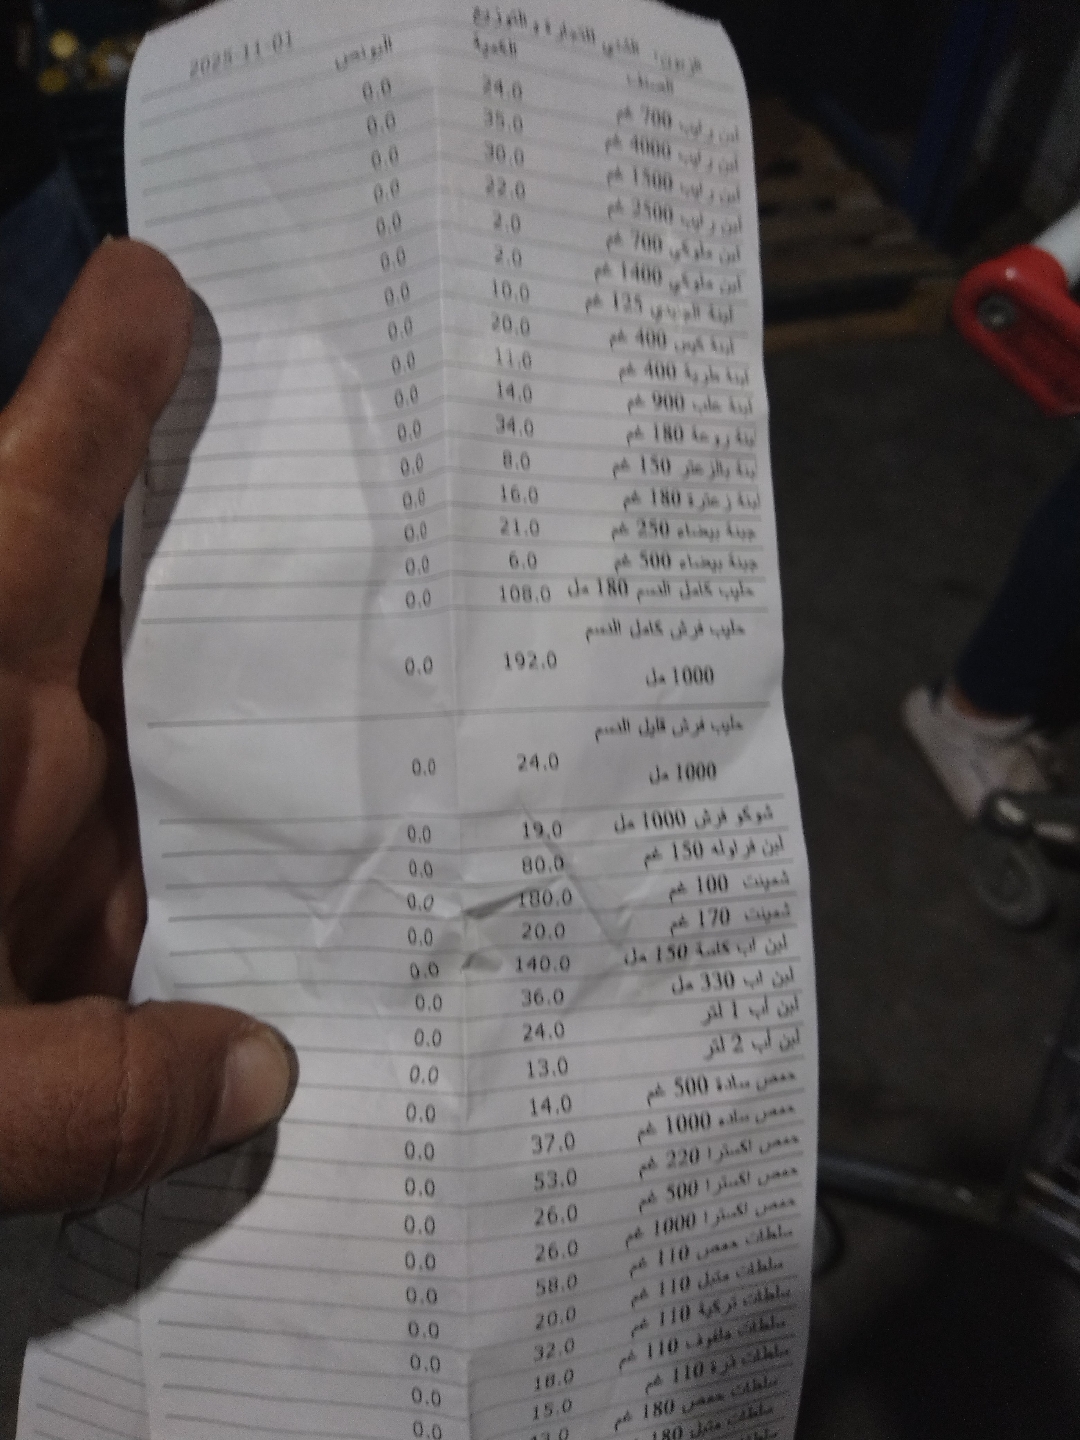 الزبون: التجارة و التوزيع
2025-11-01
الصنف الكمية البونص
لبن رايب 700 غم 24.0 0.0
لبن رايب 4000 غم 35.0 0.0
لبن رايب 1500 غم 30.0 0.0
لبن رايب 2500 غم 22.0 0.0
لبن ملوكي 700 غم 2.0 0.0
لبن ملوكي 1400 غم 2.0 0.0
لبنة 125 غم 10.0 0.0
لبنة كيس 400 غم 20.0 0.0
لبنة طرية 400 غم 11.0 0.0
لبنة علب 900 غم 14.0 0.0
لبنة روعة 180 غم 34.0 0.0
لبنة بالزعتر 150 غم 8.0 0.0
لبنة زعترة 180 غم 16.0 0.0
جبنة بيضاء 250 غم 21.0 0.0
جبنة بيضاء 500 غم 6.0 0.0
حليب كامل الدسم 180 مل 108.0 0.0
حليب فرش كامل الدسم
1000 مل 192.0 0.0
حليب فرش قليل الدسم
1000 مل 24.0 0.0
شوكو فرش 1000 مل 19.0 0.0
لبن فراوله 150 غم 80.0 0.0
شمينت 100 غم 180.0 0.0
شمينت 170 غم 20.0 0.0
لبن اب كاسة 150 مل 140.0 0.0
لبن اب 330 مل 36.0 0.0
لبن أب 1 لتر 24.0 0.0
لبن أب 2 لتر 13.0 0.0
حمص سادة 500 غم 14.0 0.0
حمص ساده 1000 غم 37.0 0.0
حمص اكسترا 220 غم 53.0 0.0
حمص اكسترا 500 غم 26.0 0.0
حمص اكسترا 1000 غم 26.0 0.0
سلطات حمص 110 غم 58.0 0.0
سلطات متبل 110 غم 20.0 0.0
سلطات تركية 110 غم 32.0 0.0
سلطات ملفوف 110 غم 18.0 0.0
سلطات ذرة 110 غم 15.0 0.0
سلطات حمص 180 غم 0.0
سلطات متبل 180